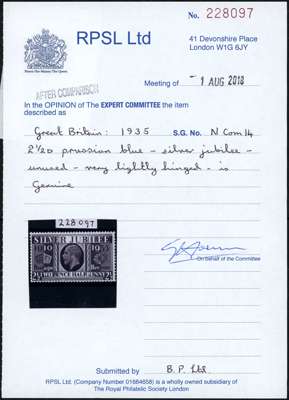 No. 228097
RPSL Ltd
41 Devonshire Place
London W1G 6JY
Meeting of - 1 AUG 2018
AFTER COMPARISON
In the OPINION of The EXPERT COMMITTEE the item
described as
Great Britain: 1935 S.G. No. N Com 14
2½d prussian blue - silver jubilee -
unused - very lightly hinged - is
Genuine
228097
SILVER JUBILEE
1910 1935
TWO PENCE HALFPENNY
On behalf of the Committee
Submitted by B. P. Ltd.
RPSL Ltd. (Company Number 01664658) is a wholly owned subsidiary of
The Royal Philatelic Society London